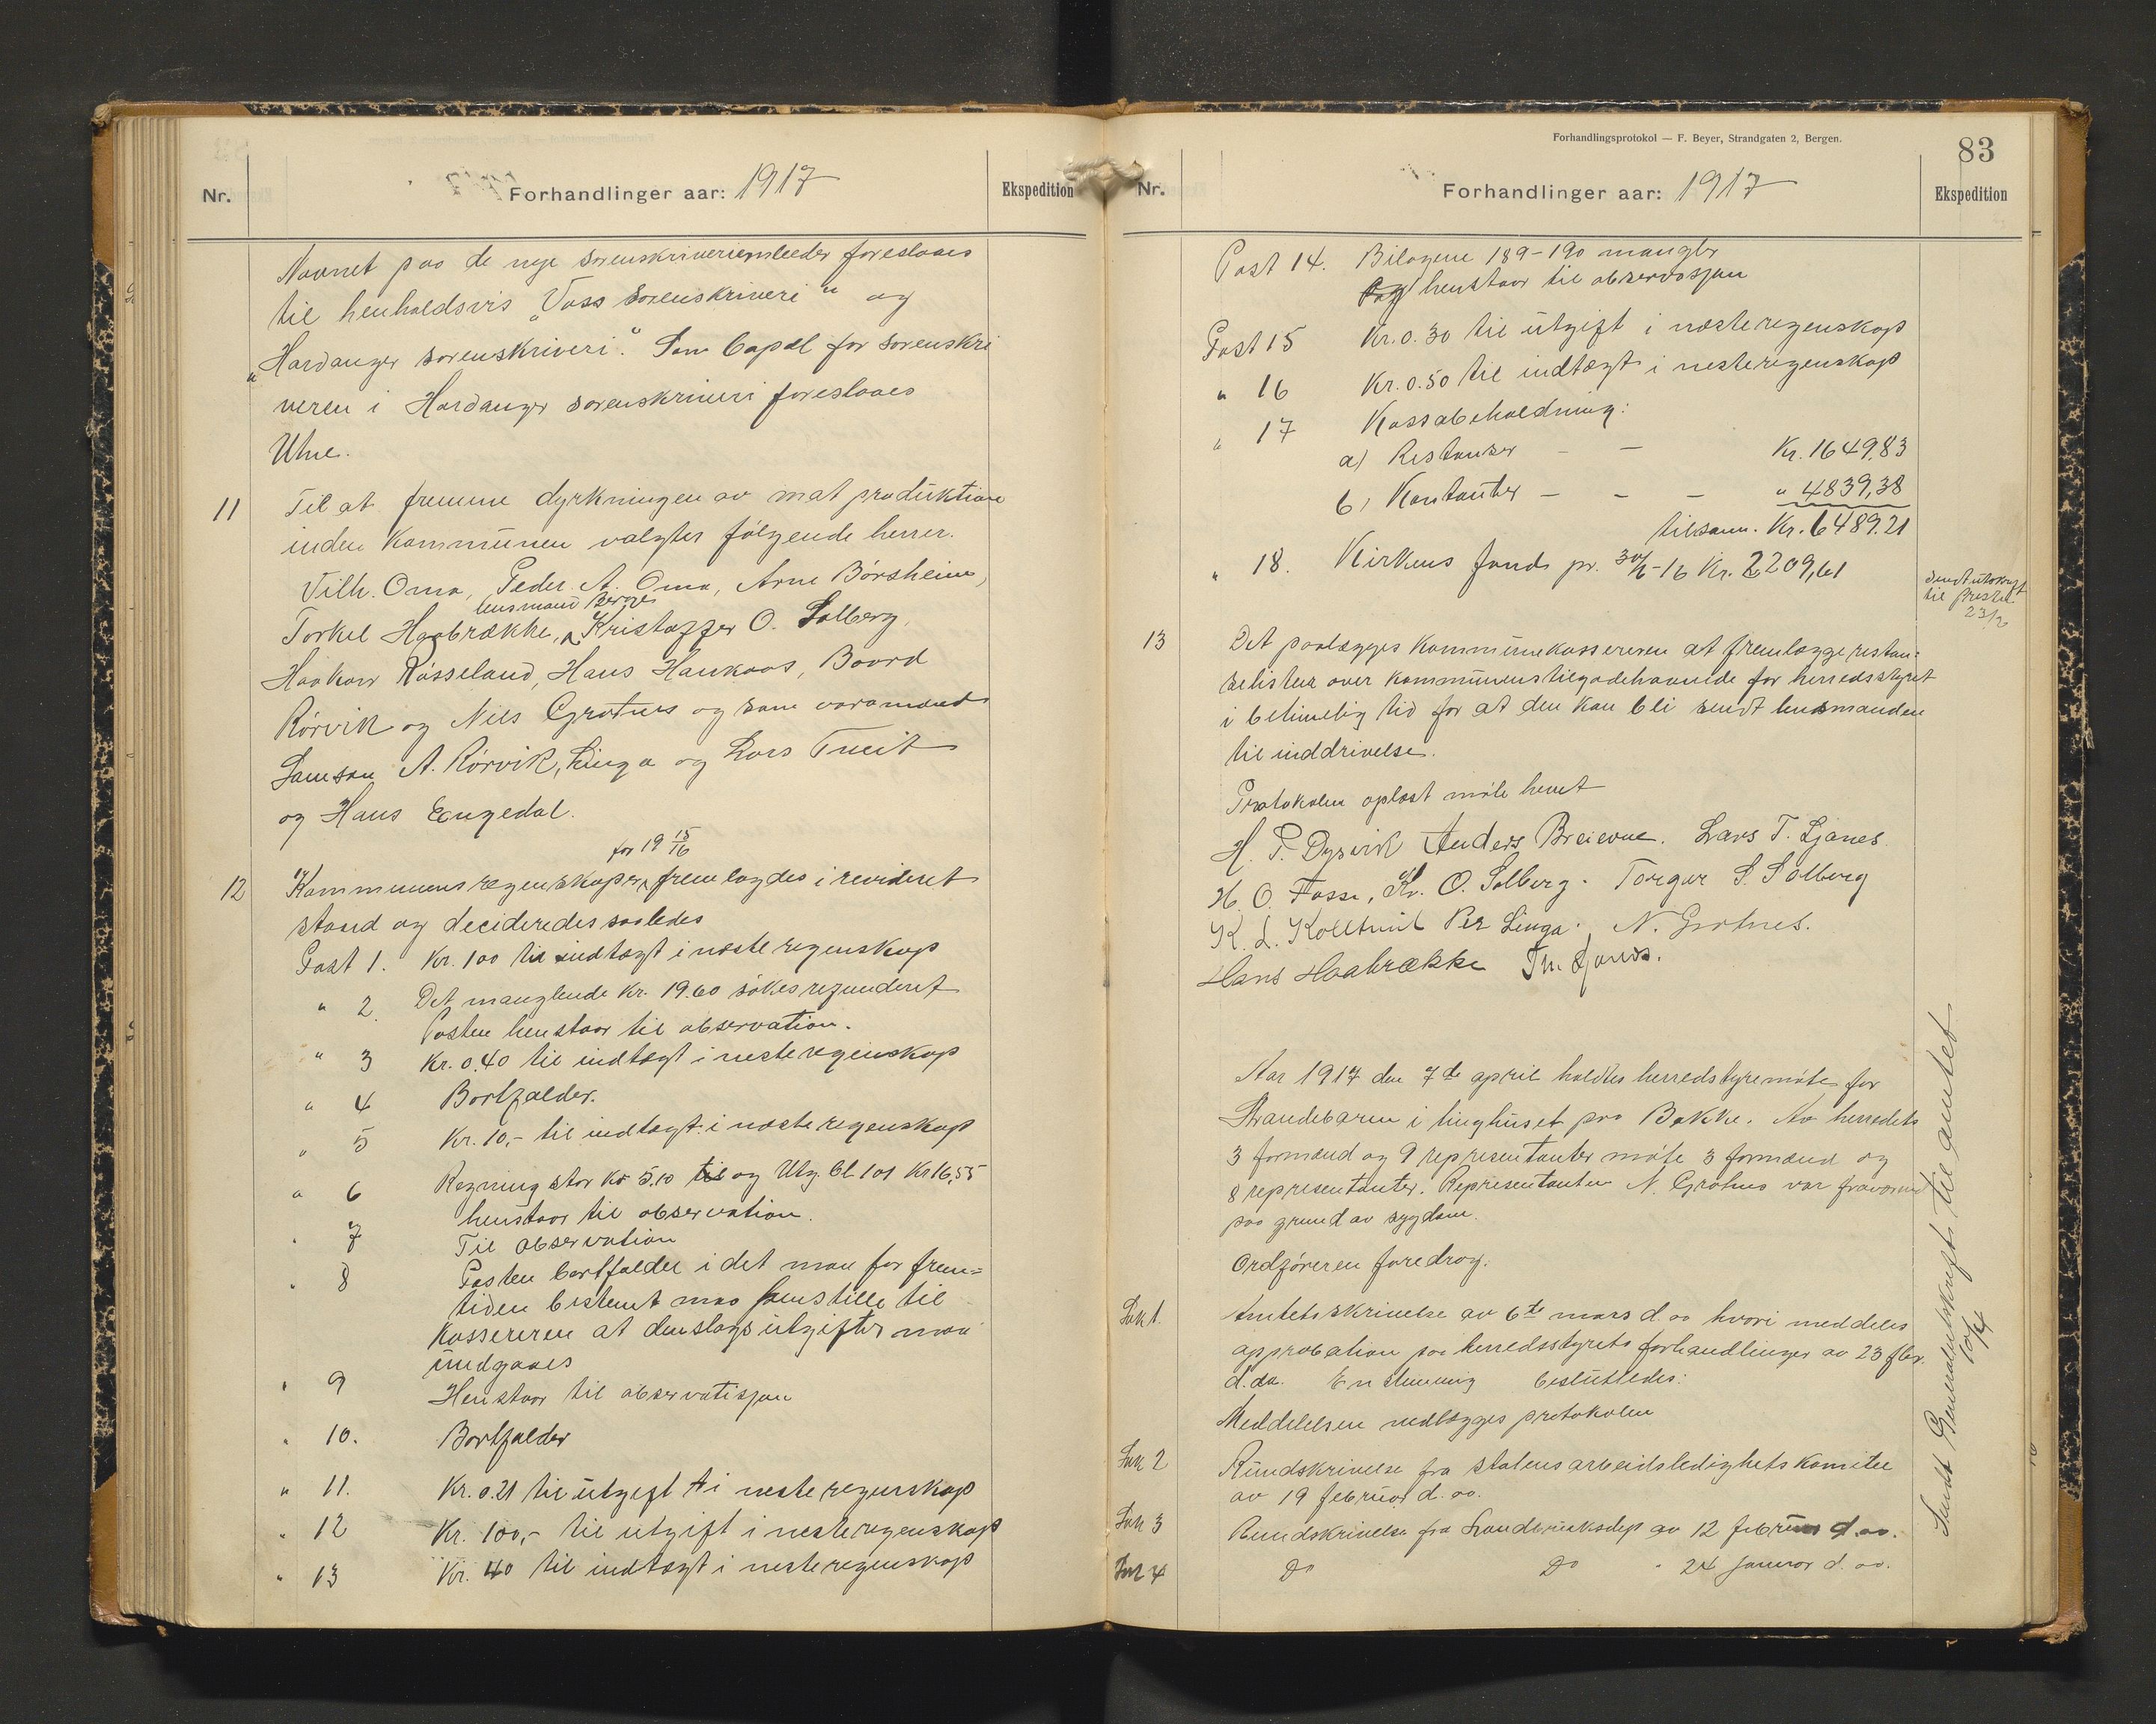 Nr.
Forhandlinger aar: 1917
Ekspedition
Navnet paa de nye sorenskriverienbeder foreslaaes
til henholdsvis „Voss Sorenskriveri“ og
„Hardanger sorenskriveri“. Som Bopæl for sorenskri
veren i Hardanger sorenskriveri foreslaaes
Utne.
11 Til at fremme dyrkningen av mat produktion
inden kommunen valgtes følgende herrer.
Vilh. Oma, Peder A. Oma, Arne Børsheim,
lensmand Berge
Torkel Haabrække, Kristoffer O. Solberg,
Haakon Røsseland, Hans Haukaas, Baard
Rørvik og Nils Grotnes og som varamænd
Samson A. Rørvik, Linga og Lars Tveit
og Hans Engedal.
for 1915/16
12 Kommunens regnskaper fremlagdes i revideret
stand og decideredes saaledes
Post 1. Kr. 100 til indtægt i næste regnskap
" 2. Det manglende Kr. 19.60 søkes refunderet
Posten henstaar til observation.
" 3 Kr. 0.40 til indtægt i neste regnskap
" 4 Bortfalder.
" 5 Kr. 10,- til indtægt i næste regnskap
" 6 Regning stor Kr 5.10 til og Utg. bl 101 Kr 16,55
henstaar til observation.
" 7 Til observation
" 8 Posten bortfalder i det man for frem=
tiden bestemt maa henstille til
Kassereren at denslags utgifter maa
undgaaes
" 9 Henstaar til observatisjon
" 10. Bortfalder
" 11. Kr. 0.21 til utgift i neste regnskap
" 12 Kr. 100,- til utgift i neste regnskap
" 13 Kr. 40 til indtægt i neste regnskap
Forhandlingsprotokol — F. Beyer, Strandgaten 2, Bergen.
83
Nr.
Forhandlinger aar: 1917
Ekspedition
Post 14. Bilagene 189-190 mangler
og henstaar til observasjon
Post 15 Kr. 0.30 til utgift i næste regnskap
" 16 Kr. 0.50 til indtægt i neste regnskap
" 17 Kassabeholdning:
a) Restanser — — Kr. 1649,83
b) Kontanter — — — " 4839,38
tilsam. Kr. 6489.21
" 18. Kirkens fond pr. 30/6-16 Kr. 2209,61
Sendt utskrift
til presten
23/2
13 Det paalægges kommunekassereren at fremlægge restan=
selisten over kommunens tilgodehavende for herredsstyret
i betimelig tid for at den kan bli sendt lensmanden
til inddrivelse.
Protokolen oplæst møte hevet
H. P. Dysvik Anders Breievne. Lars T. Ljones
H. O. Fosse, Kr. O. Solberg. Torgeir S. Solberg
K. L. Kolltveit Per Linga. N. Grotnes.
Hans Haabrække Th. Ljones.
Aar 1917 den 7de april holdtes herredstyremøte for
Strandebarm i tinghuset paa Bakke. Av herredets
3 formænd og 9 representanter møtte 3 formænd og
8 representanter. Representanten N. Grotnes var fraværend
paa grund av sygdom.
Ordføreren foredrog.
Sak 1. Amtets skrivelse av 6te mars d.aa hvori meddeles
approbation paa herredsstyrets forhandlinger av 23 fbr.
d.aa. Enstemmig beslutledes:
Meddelelsen vedlægges protokolen
Sak 2 Rundskrivelse fra statens arbeidsledighets komite
av 19 februar d. aa.
Sak 3 Rundskrivelse fra Landbruksdep av 12 februar d.aa.
Sak 4 Do Do " 24 januar d. aa.
Sendt Gjenpartutskrift til amtet
10/4